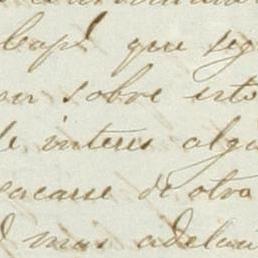 Cap.l que seg
sobre esto
de interes algu
sacarse de otra
mas adelan